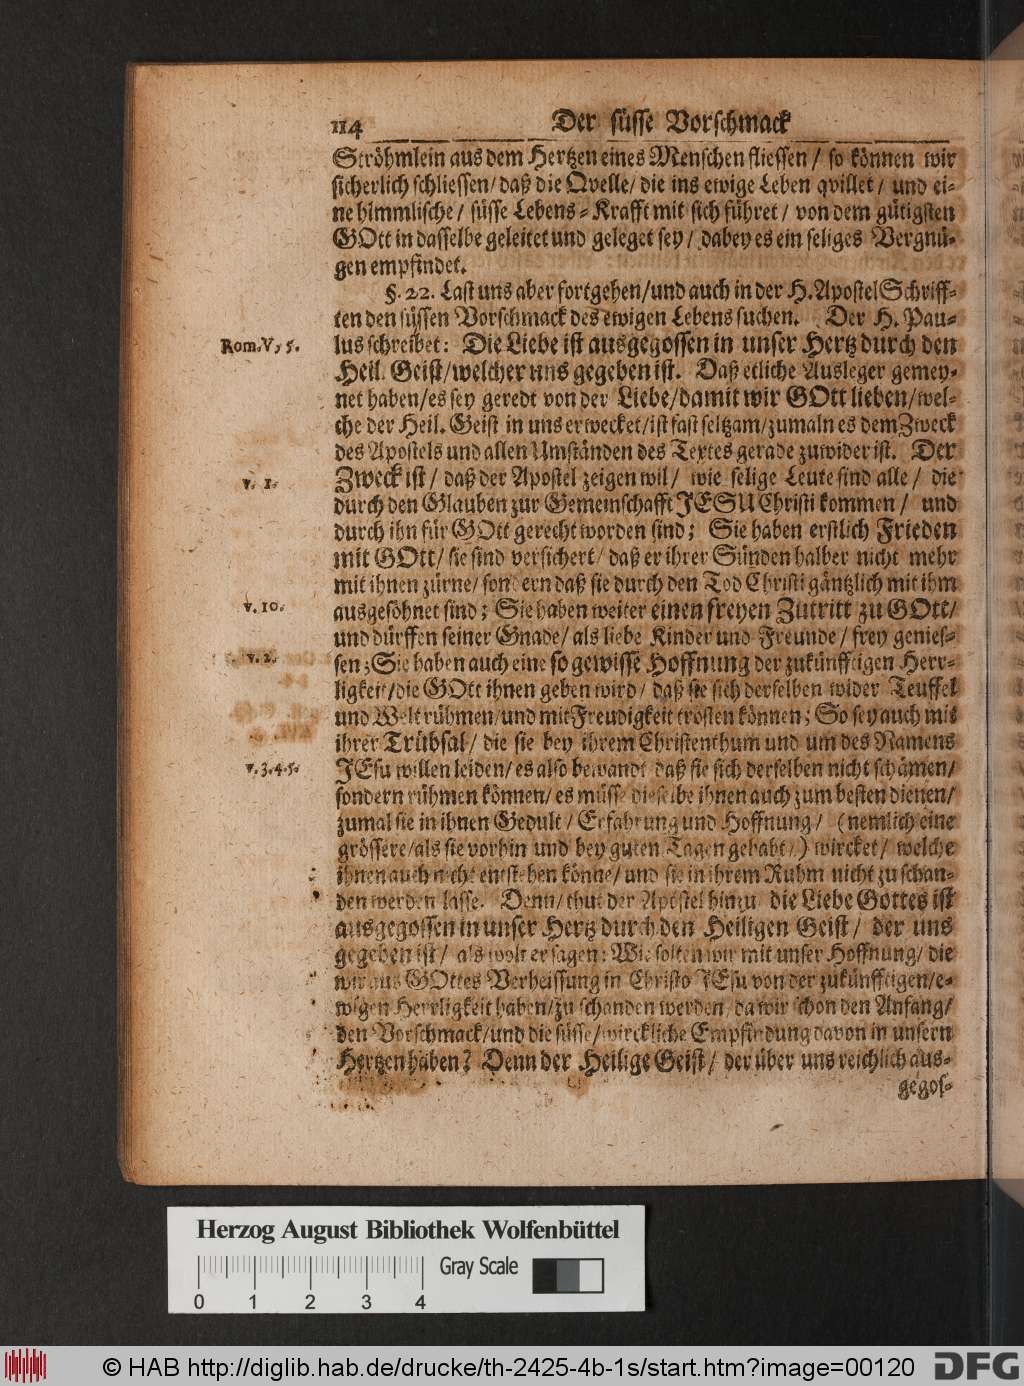 114 Der süsse Vorschmack
Ströhmlein aus dem Hertzen eines Menschen fliessen / so können wir
sicherlich schliessen / daß die Qvelle / die ins ewige Leben qvillet / und ei-
ne himmlische / süsse Lebens-Krafft mit sich führet / von dem gütigsten
GOtt in dasselbe geleitet und geleget sey / dabey es ein seliges Vergnü-
gen empfindet.
§. 22. Last uns aber fortgehen / und auch in der H. Apostel Schriff-
ten den süssen Vorschmack des ewigen Lebens suchen. Der H. Pau-
Rom. V, 5. lus schreibet: Die Liebe ist ausgegossen in unser Hertz durch den
Heil. Geist / welcher uns gegeben ist. Daß etliche Ausleger gemey-
net haben / es sey geredt von der Liebe / damit wir GOtt lieben / wel-
che der Heil. Geist in uns erwecket / ist fast seltzam / zumaln es dem Zweck
des Apostels und allen Umständen des Textes gerade zuwider ist. Der
v. 1. Zweck ist / daß der Apostel zeigen wil / wie selige Leute sind alle / die
durch den Glauben zur Gemeinschafft JESU Christi kommen / und
durch ihn für GOtt gerecht worden sind; Sie haben erstlich Frieden
mit GOtt / sie sind versichert / daß er ihrer Sünden halber nicht mehr
mit ihnen zürne / sondern daß sie durch den Tod Christi gäntzlich mit ihm
v. 10. ausgesöhnet sind; Sie haben weiter einen freyen Zutritt zu GOtt /
und dürffen seiner Gnade / als liebe Kinder und Freunde / frey genies-
v. 2. sen; Sie haben auch eine so gewisse Hoffnung der zukünfftigen Herr-
ligkeit / die GOtt ihnen geben wird / daß sie sich derselben wider Teuffel
und Welt rühmen / und mit Freudigkeit trösten können; So sey auch mit
ihrer Trübsal / die sie bey ihrem Christenthum und um des Namens
v. 3. 4. 5. JEsu willen leiden / es also bewandt / daß sie sich derselben nicht schämen /
sondern rühmen können / es müsse dieselbe ihnen auch zum besten dienen /
zumal sie in ihnen Gedult / Erfahrung und Hoffnung / (nemlich eine
grössere / als sie vorhin und bey guten Tagen gehabt /) wircket / welche
ihnen auch nicht entstehen könne / und sie in ihrem Ruhm nicht zu schan-
den werden lasse. Denn / thut der Apostel hinzu / die Liebe Gottes ist
ausgegossen in unser Hertz durch den Heiligen Geist / der uns
gegeben ist / als wolt er sagen: Wie solten wir mit unser Hoffnung / die
wir aus GOttes Verheissung in Christo JEsu von der zukünfftigen / e-
wigen Herrligkeit haben / zu schanden werden / da wir schon den Anfang /
den Vorschmack / und die süsse / wirckliche Empfindung davon in unsern
Hertzen haben? Denn der Heilige Geist / der über uns reichlich aus-
gegos-
Herzog August Bibliothek Wolfenbüttel
Gray Scale
0 1 2 3 4
© HAB http://diglib.hab.de/drucke/th-2425-4b-1s/start.htm?image=00120 DFG